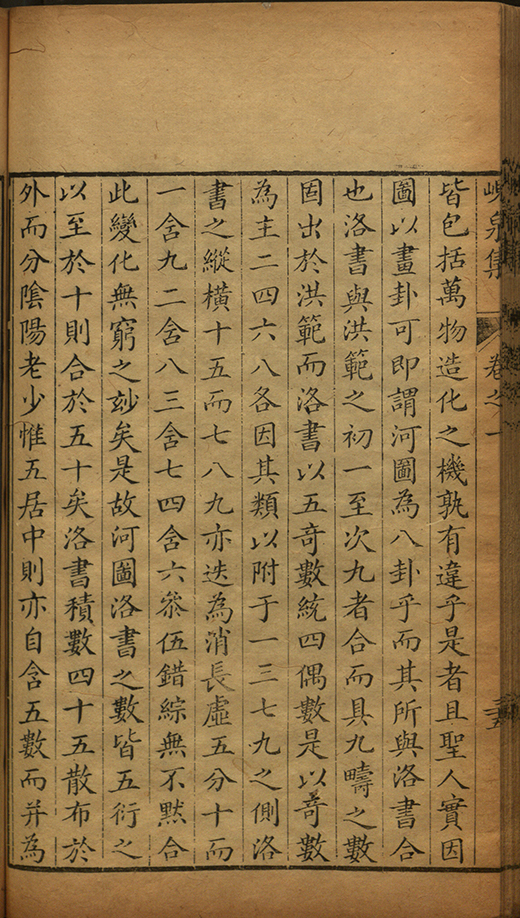 峴泉集 卷之一
皆包括萬物造化之機孰有違乎是者且聖人實因
圖以畫卦可即謂河圖為八卦乎而其所與洛書合
也洛書與洪範之初一至次九者合而具九疇之數
固出於洪範而洛書以五竒數統四偶數是以竒數
為主二四六八各因其類以附于一三七九之側洛
書之縱橫十五而七八九亦迭為消長虛五分十而
一含九二含八三含七四含六叅伍錯綜無不黙合
此變化無窮之玅矣是故河圖洛書之數皆五衍之
以至於十則合於五十矣洛書積數四十五散布於
外而分隂陽老少惟五居中則亦自含五數而并為